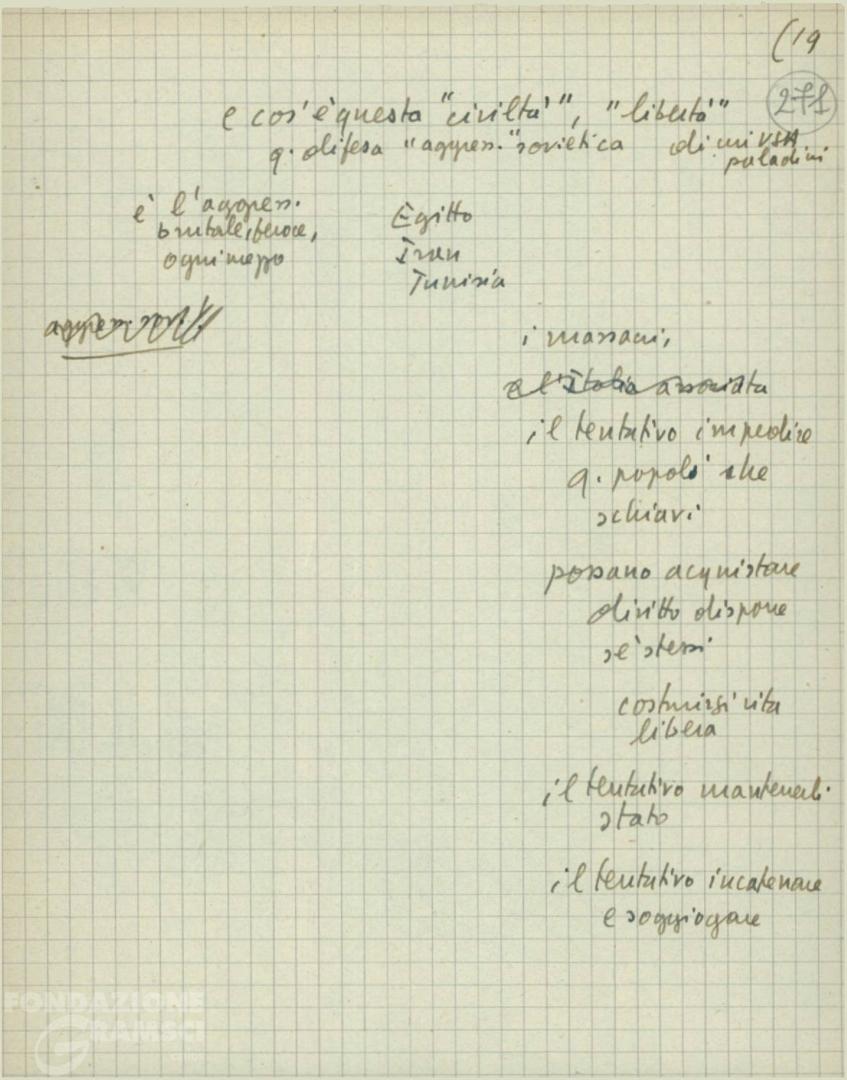 (19
271
e cos'è questa "civiltà", "libertà"
q. difesa "aggress." sovietica di cui USA
paladini
è l'aggress.
brutale, feroce,
ogni mezzo
Egitto
Iran
Tunisia
aggress. sov.
i massacri,
e l'Italia associata
il tentativo impedire
q. popoli che
schiavi
possano acquistare
diritto disporre
sé stessi
costruirsi vita
libera
il tentativo mantenerli
stato
il tentativo incatenare
e soggiogare
FONDAZIONE
GRAMSCI